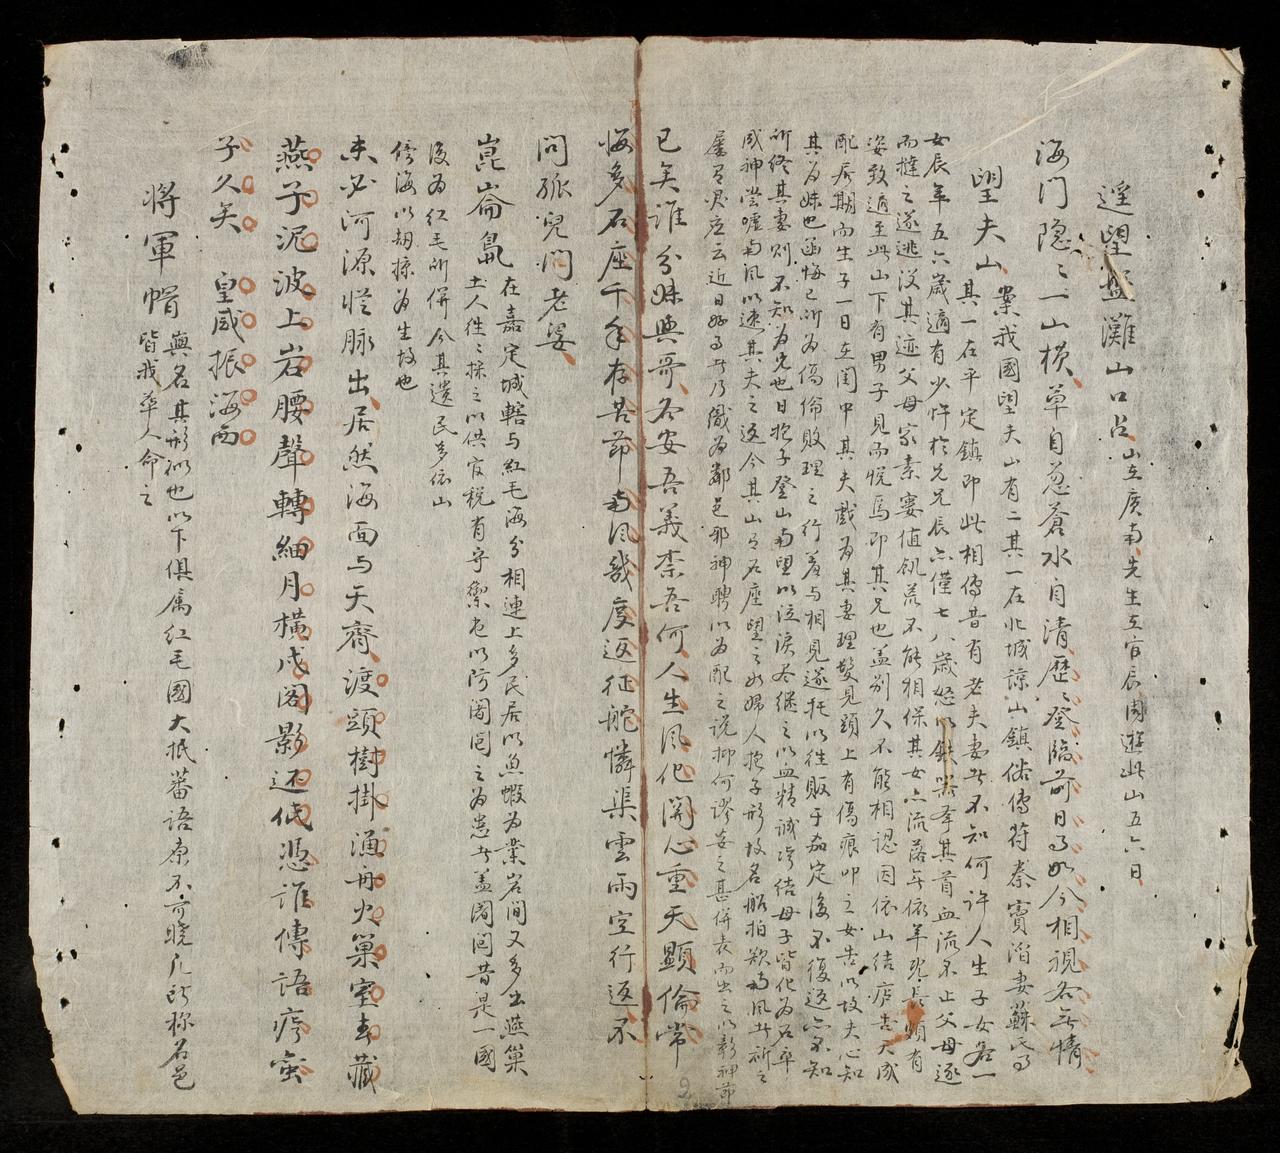 遥望盤灘山口占山在廣南先生在官辰周遊此山五六日
海門隐〻一山橫草自忽蒼水自清歷〻登臨前日事如今相視各無情
望夫山案我國望夫山有二其一在北城諒山鎮俗傳苻秦竇滔妻蘇氏事
其一在平定鎮即此相傳昔有老夫妻者不知何許人生子女各一
女辰年五六歲適有少忤於兄兄辰亦僅七八歲怒以鉄器斧其首血流不止父母逐
而撻之遂逃沒其迹父母家素窭值飢荒不能相保其女亦流落無依年既長頗有
姿致適至此山下有男子見而悅焉即其兄也盖别久不能相認因依山結庐吉天成
配居期而生子一日在閨中其夫戲为其妻理髮見頭上有傷痕叩之女告以故夫心知
其为妹也函悔已所为傷倫敗理之行羞与相見遂托以往販于嘉定後不復返亦不知
所終其妻則不知为兄也日抱子登山南望以泣淚尽继之以血精誠凝结母子皆化为石卒
成神嘗嘘南風以速其夫之返今其山上石座望之如婦人抱子形故名船拍欲南風者祈之
屢有灵应云近日好事者乃儀为鄰邑邪神聘以为配之说抑何謬妄之甚併表而出之以彰神節
已矣誰分妹與哥各安吾義柰吾何人生風化関心重天顯倫常
悔多石座千年存苦節南風幾度返征舵憐渠雲雨空行返不
問孤兒問老婆
崑崙島在嘉定城轄与紅毛海分相連上多民居以魚蝦为業岩间又多出燕巢
土人往〻採之以供官税有守禦屯以防阇闾之为患者盖阇闾昔是一國
後为红毛所併今其遺民多依山
傍海以劫掠为生故也
未必河源怪脉出居然海面与天齊渡頭樹掛漁舟火巢室春藏
燕子泥波上岩腰聲轉細月橫戍阁影还低憑誰傳語疍蛮
子久矣 皇威振海西
將軍帽與名其形似也以下俱属紅毛國大抵蕃语原不可曉凡所称名邑
皆我華人命之
2